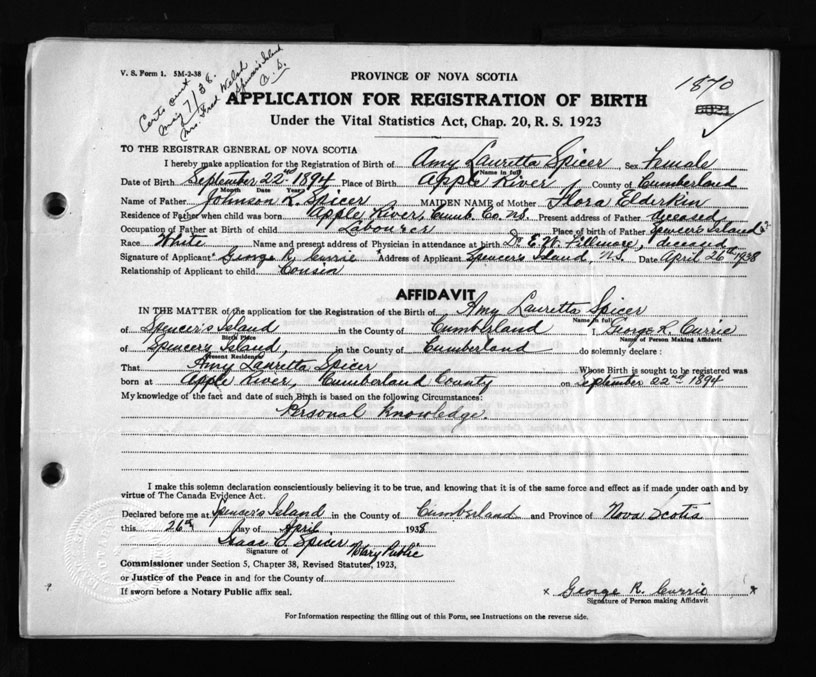 V. S. Form 1. 5M-2-38
Certs out
May 7/38.
Mrs. Fred Welsh
Spencer's Island
N. S.
1870
PROVINCE OF NOVA SCOTIA
APPLICATION FOR REGISTRATION OF BIRTH
Under the Vital Statistics Act, Chap. 20, R. S. 1923
TO THE REGISTRAR GENERAL OF NOVA SCOTIA
I hereby make application for the Registration of Birth of Amy Lauretta Spicer Sex Female
Name in full
Date of Birth September 22nd 1894 Place of Birth Apple River County of Cumberland
Month Date Year
Name of Father Johnson K. Spicer MAIDEN NAME of Mother Flora Elderkin
Residence of Father when child was born Apple River, Cumb. Co. N.S. Present address of Father deceased
Occupation of Father at Birth of child Labourer Place of birth of Father Spencers Island
Race White Name and present address of Physician in attendance at birth Dr. E. W. Fillmore, deceased
Signature of Applicant George R. Currie Address of Applicant Spencer's Island, N.S. Date April 26th 1938
Relationship of Applicant to child Cousin
AFFIDAVIT
IN THE MATTER of the application for the Registration of the Birth of Amy Lauretta Spicer
Name in full
of Spencer's Island in the County of Cumberland I, George R. Currie
Birth Place Name of Person Making Affidavit
of Spencers Island, in the County of Cumberland do solemnly declare :
Present Residence
That Amy Lauretta Spicer Whose Birth is sought to be registered was
born at Apple River, Cumberland County on September 22nd 1894
My knowledge of the fact and date of such Birth is based on the following Circumstances:
Personal Knowledge.
I make this solemn declaration conscientiously believing it to be true, and knowing that it is of the same force and effect as if made under oath and by
virtue of The Canada Evidence Act.
Declared before me at Spencer's Island in the County of Cumberland and Province of Nova Scotia
this 26th day of April 1938
Isaac C. Spicer Notary Public
Signature of
Commissioner under Section 5, Chapter 38, Revised Statutes, 1923,
or Justice of the Peace in and for the County of
If sworn before a Notary Public affix seal.
x George R. Currie x
Signature of Person making Affidavit
For Information respecting the filling out of this Form, see Instructions on the reverse side.